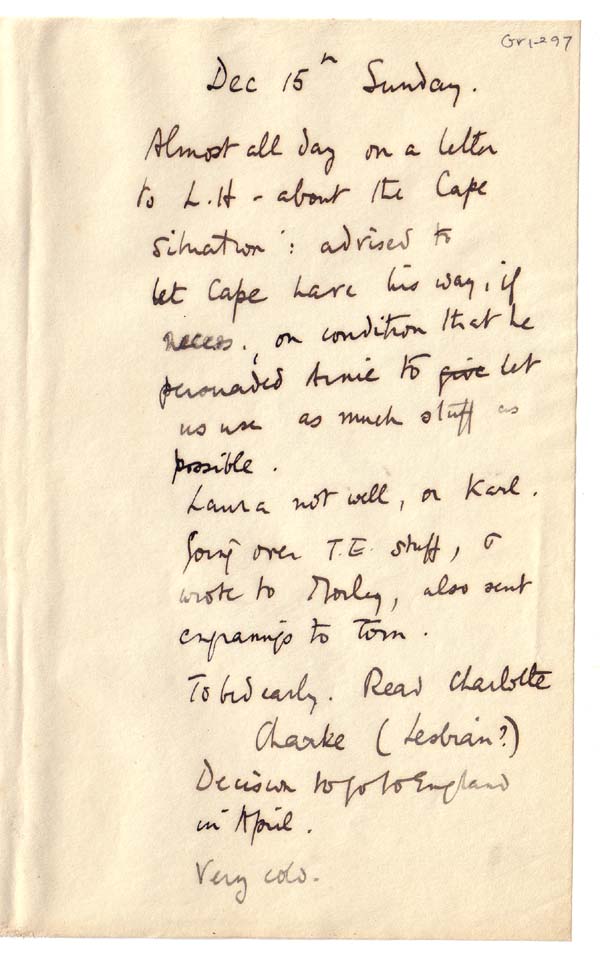 Gr1-297
Dec 15th Sunday.
Almost all day on a letter
to L.H - about the Cape
situation': advised to
let Cape have his way, if
necess., on condition that he
persuaded Arnie to give let
us use as much stuff as
possible.
Laura not well, or Karl.
Going over T.E. stuff, &
wrote to Morley, also sent
engravings to Tom.
To bed early. Read Charlotte
Charke (Lesbian?)
Decision to go to England
in April.
Very cold.